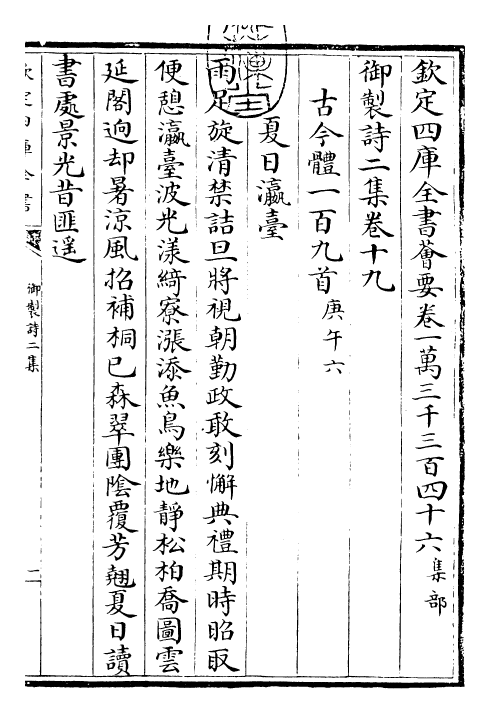 欽定四庫全書薈要卷一萬三千三百四十六集部
御製詩二集卷十九
古今體一百九首庚午六
夏日瀛臺
雨足旋清禁詰旦將視朝勤政敢刻懈典禮期時昭取
便憩瀛臺波光漾綺寮漲添魚鳥樂地靜松柏喬圖雲
延閣逈却暑涼風招補桐已森翠團陰覆芳翹夏日讀
書處景光昔匪遥
欽定四庫全書
御製詩二集
二